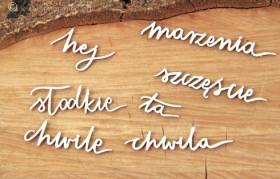 hej
marzenia
szczęście
słodkie
ta
chwile
chwila